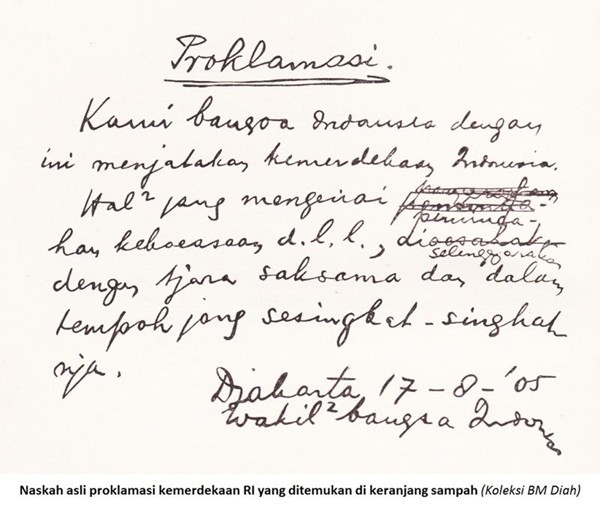 Proklamasi.
Kami bangsa Indonesia dengan
ini menjatakan kemerdekaan Indonesia.
Hal² jang mengenai
peminda-
han kekoeasaan d.l.l., dioesahakan
selenggarakan
dengan tjara saksama dan dalam
tempoh jang sesingkat-singkat
nja.
Djakarta 17-8-'05
Wakil² bangsa Indonesia
Naskah asli proklamasi kemerdekaan RI yang ditemukan di keranjang sampah (Koleksi BM Diah)